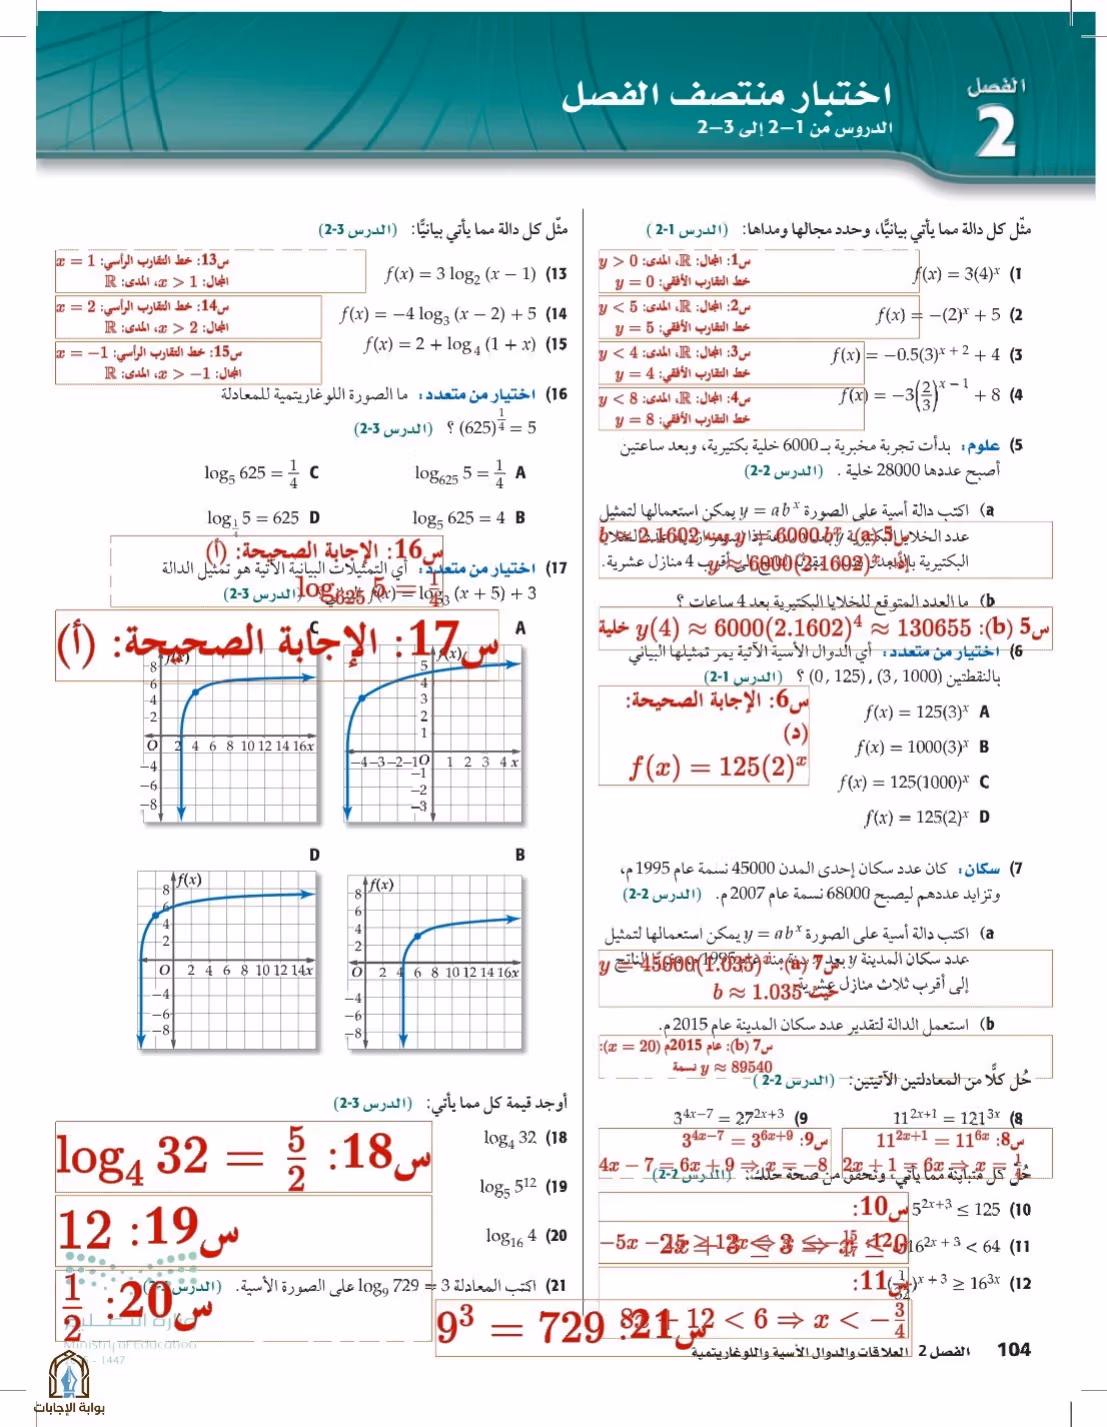 الفصل
2
اختبار منتصف الفصل
الدروس من 1–2 إلى 3–2
مثّل كل دالة مما يأتي بيانيًّا، وحدد مجالها ومداها: (الدرس 1-2)
(1 f(x) = 3(4)^x
س1: المجال: ℝ، المدى: y > 0
خط التقارب الأفقي: y = 0
(2 f(x) = −(2)^x + 5
س2: المجال: ℝ، المدى: y < 5
خط التقارب الأفقي: y = 5
(3 f(x) = −0.5(3)^{x + 2} + 4
س3: المجال: ℝ، المدى: y < 4
خط التقارب الأفقي: y = 4
(4 f(x) = −3(2/3)^{x − 1} + 8
س4: المجال: ℝ، المدى: y < 8
خط التقارب الأفقي: y = 8
(5 علوم: بدأت تجربة مخبرية بـ 6000 خلية بكتيرية، وبعد ساعتين
أصبح عددها 28000 خلية. (الدرس 2-2)
(a اكتب دالة أسية على الصورة y = ab^x يمكن استعمالها لتمثيل
س5 (a): y = 6000b^x ومنه b ≈ 2.1602
البكتيرية إلى أقرب 4 منازل عشرية.
y ≈ 6000(2.1602)^x
(b ما العدد المتوقع للخلايا البكتيرية بعد 4 ساعات ؟
س5 (b): y(4) ≈ 6000(2.1602)^4 ≈ 130655 خلية
(6 اختيار من متعدد: أي الدوال الأسية الآتية يمر تمثيلها البياني
بالنقطتين (0, 125), (3, 1000) ؟ (الدرس 1-2)
f(x) = 125(3)^x A
f(x) = 1000(3)^x B
f(x) = 125(1000)^x C
f(x) = 125(2)^x D
س6: الإجابة الصحيحة:
(د)
f(x) = 125(2)^x
(7 سكان: كان عدد سكان إحدى المدن 45000 نسمة عام 1995م،
وتزايد عددهم ليصبح 68000 نسمة عام 2007م. (الدرس 2-2)
(a اكتب دالة أسية على الصورة y = ab^x يمكن استعمالها لتمثيل
عدد سكان المدينة y بعد
س7 (a): y = 45000(1.035)^x
إلى أقرب ثلاث منازل عشرية.
حيث b ≈ 1.035
(b استعمل الدالة لتقدير عدد سكان المدينة عام 2015م.
س7 (b): عام 2015م (x = 20):
y ≈ 89540 نسمة
حُل كلًّا من المعادلتين الآتيتين: (الدرس 2-2)
(8 11^{2x+1} = 121^{3x}
(9 3^{4x−7} = 27^{2x+3}
س8: 11^{2x+1} = 11^{6x}
2x + 1 = 6x ⇒ x = 1/4
س9: 3^{4x−7} = 3^{6x+9}
4x − 7 = 6x + 9 ⇒ x = −8
حُل كل متباينة مما يأتي، وتحقق من صحة حلك: (الدرس 2-2)
(10 5^{2x+3} ≤ 125
س10:
2x + 3 ≤ 3 ⇒ x ≤ 0
(11 16^{2x + 3} < 64
(12 (1/32)^{x + 3} ≥ 16^{3x}
س11:
8x + 12 < 6 ⇒ x < −3/4
مثّل كل دالة مما يأتي بيانيًّا: (الدرس 3-2)
(13 f(x) = 3 log₂ (x − 1)
س13: خط التقارب الرأسي: x = 1
المجال: x > 1، المدى: ℝ
(14 f(x) = −4 log₃ (x − 2) + 5
س14: خط التقارب الرأسي: x = 2
المجال: x > 2، المدى: ℝ
(15 f(x) = 2 + log₄ (1 + x)
س15: خط التقارب الرأسي: x = −1
المجال: x > −1، المدى: ℝ
(16 اختيار من متعدد: ما الصورة اللوغاريتمية للمعادلة
(625)^{1/4} = 5 ؟ (الدرس 3-2)
log₆₂₅ 5 = 1/4 A
log₅ 625 = 1/4 C
log₅ 625 = 4 B
log_{1/4} 5 = 625 D
س16: الإجابة الصحيحة: (أ)
log₆₂₅ 5 = 1/4
(17 اختيار من متعدد: أي التمثيلات البيانية الآتية هو تمثيل الدالة
f(x) = log₃ (x + 5) + 3 (الدرس 3-2)
س17: الإجابة الصحيحة: (أ)
A
C
f(x)
8
6
4
2
O 2 4 6 8 10 12 14 16x
−4
−6
−8
f(x)
5
4
3
2
1
−4−3−2−1O 1 2 3 4 x
−1
−2
−3
B
D
f(x)
8
6
4
2
O 2 4 6 8 10 12 14x
−4
−6
−8
f(x)
8
6
4
2
O 2 4 6 8 10 12 14 16x
−4
−6
−8
أوجد قيمة كل مما يأتي: (الدرس 3-2)
(18 log₄ 32
س18: log₄ 32 = 5/2
(19 log₅ 5^{12}
س19: 12
(20 log₁₆ 4
س20: 1/2
(21 اكتب المعادلة log₉ 729 = 3 على الصورة الأسية.
س21: 9³ = 729
Ministry of Education
1447
104 الفصل 2 العلاقات والدوال الأسية واللوغاريتمية
بوابة الإجابات